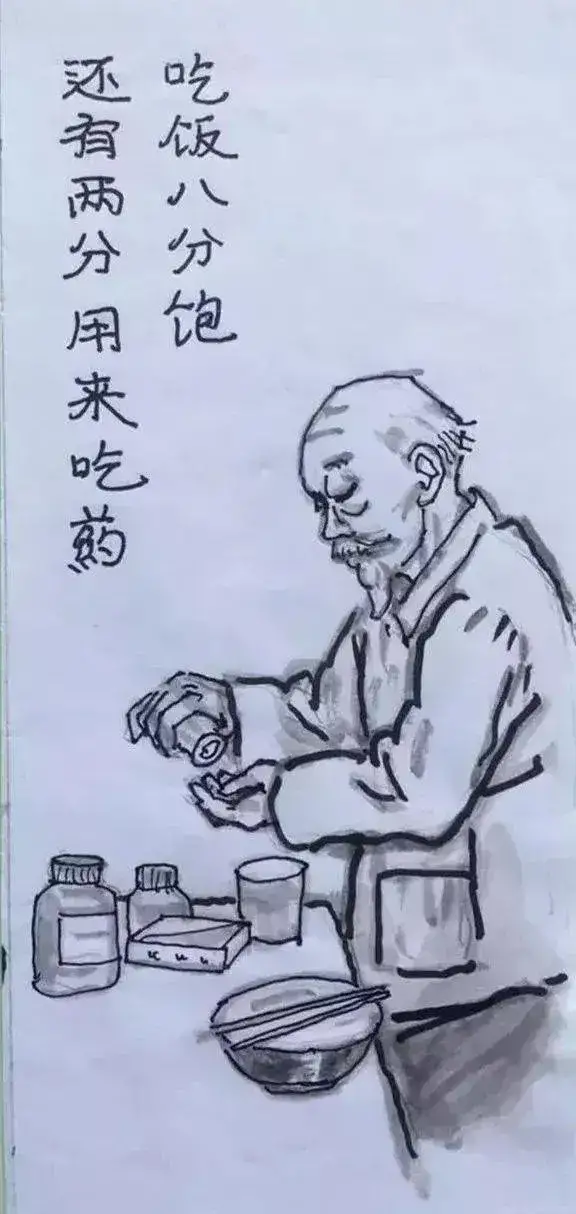 吃饭八分饱
还有两分用来吃葯